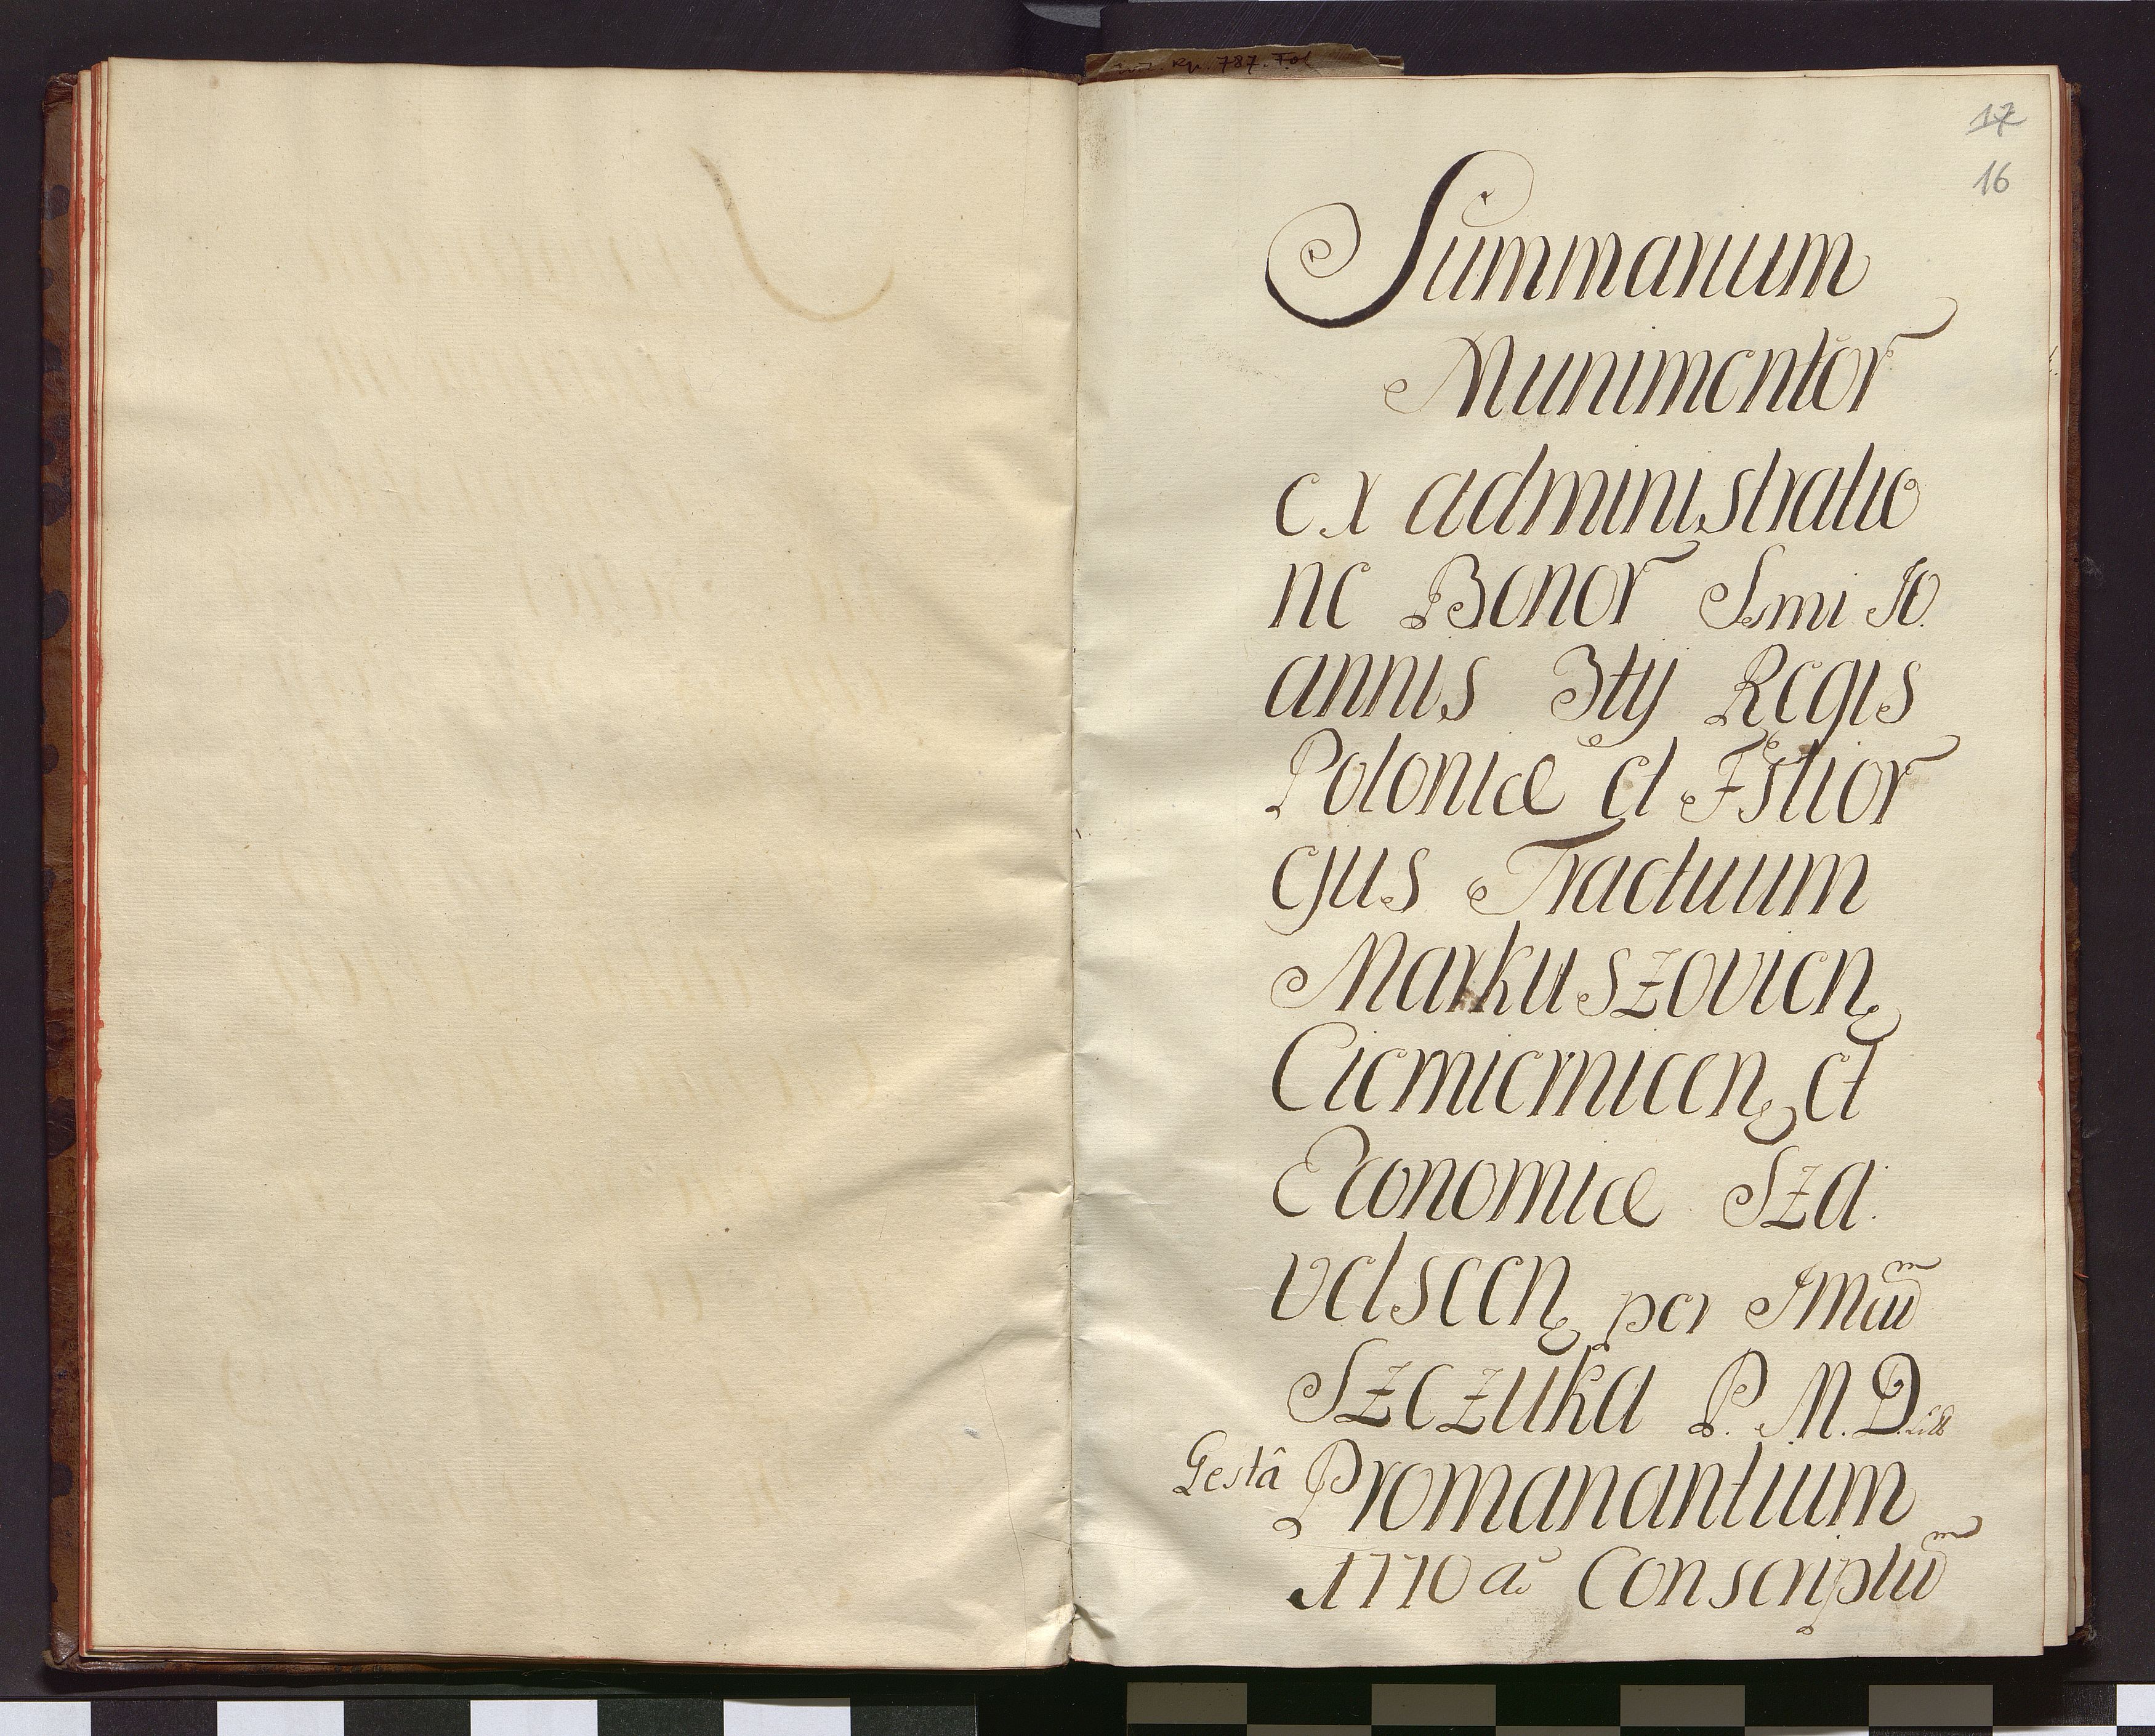 787. Fol
17
16
Summarium
Munimentor
ex administratio
ne Bonor Smi Jo
annis 3tij Regis
Poloniæ et Fstior
ejus Tractuum
Markuszovien
Ciemiernicen et
Æconomiæ Sza
velscen per JMũm
Szczuka P. M. D.
Gestâ Promanantium
1710 aõ Conscriptũm